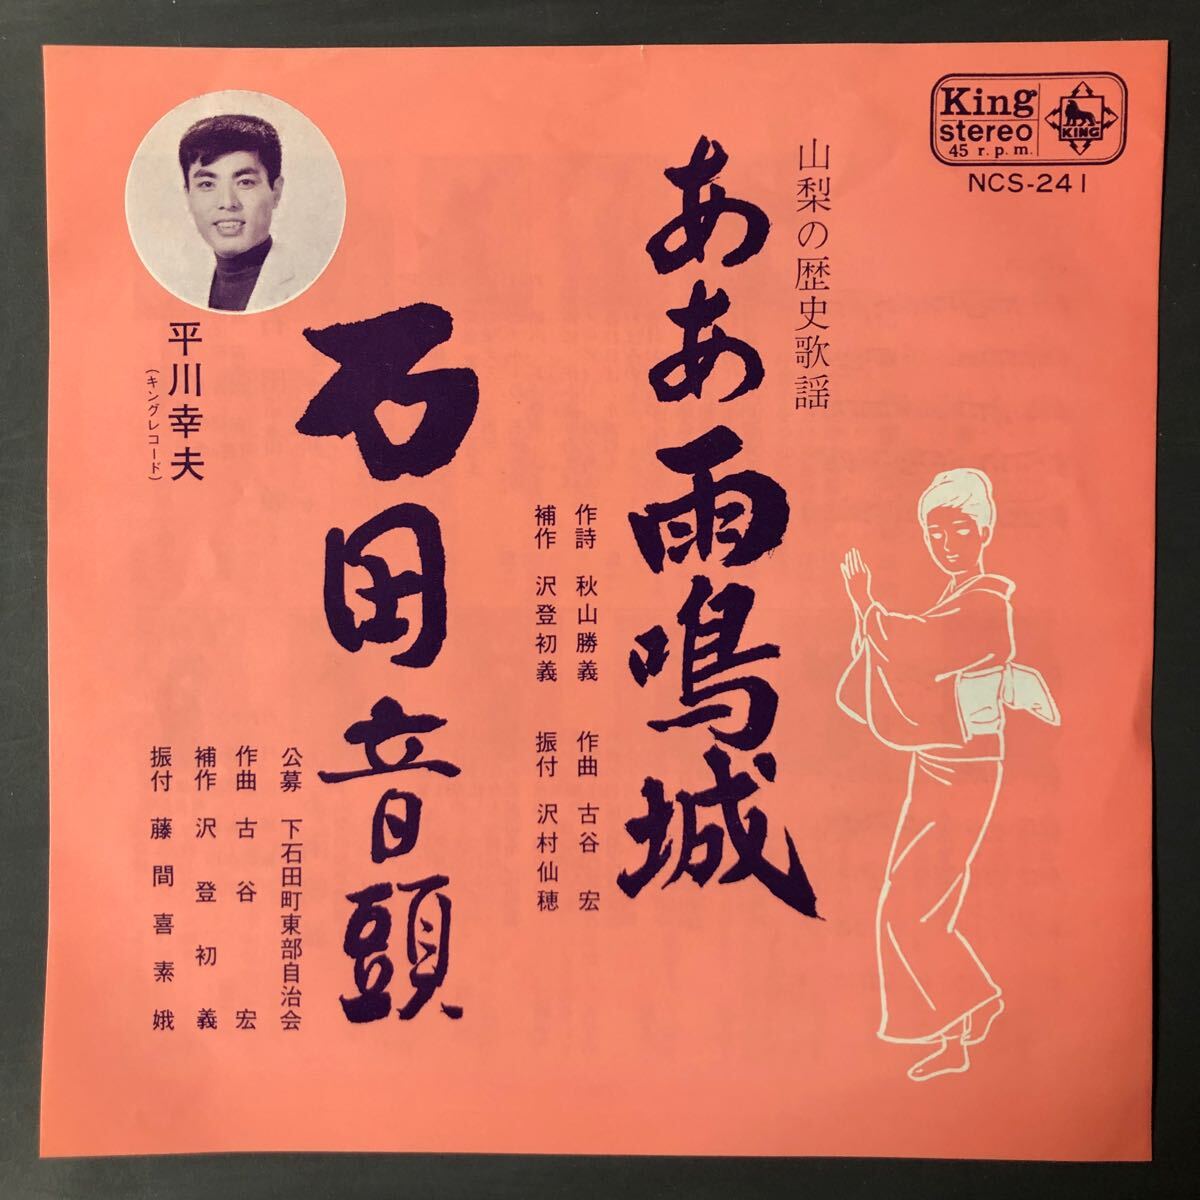 King
stereo
45 r.p.m.
KING
NCS-241
山梨の歴史歌謡
ああ雨鳴城
作詩 秋山勝義 作曲 古谷 宏
補作 沢登初義 振付 沢村仙穂
石田音頭
公募 下石田町東部自治会
作曲 古谷 宏
補作 沢登初義
振付 藤間喜素娥
平川幸夫
(キングレコード)